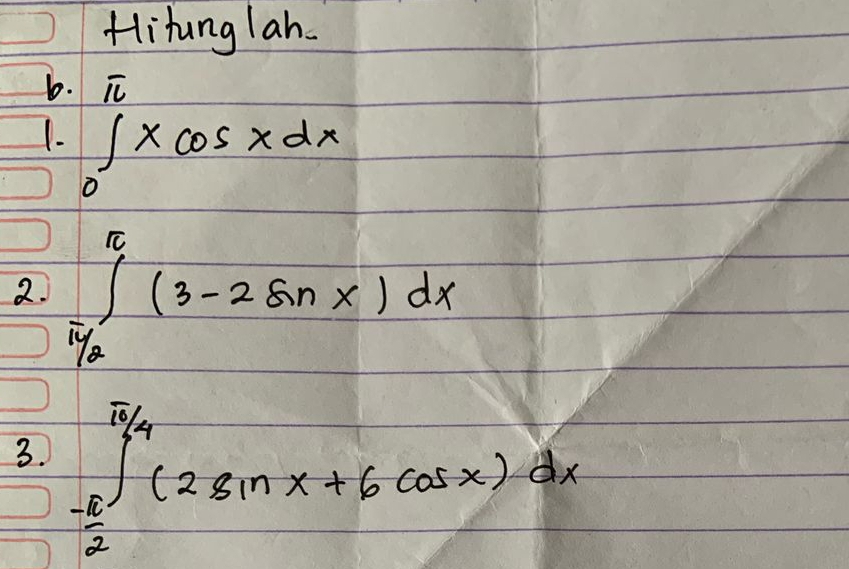 Hitunglah.
b.
1. ∫₀^π x cos x dx
2. ∫_{π/2}^π (3 - 2 sin x) dx
3. ∫_{-π/2}^{π/4} (2 sin x + 6 cos x) dx